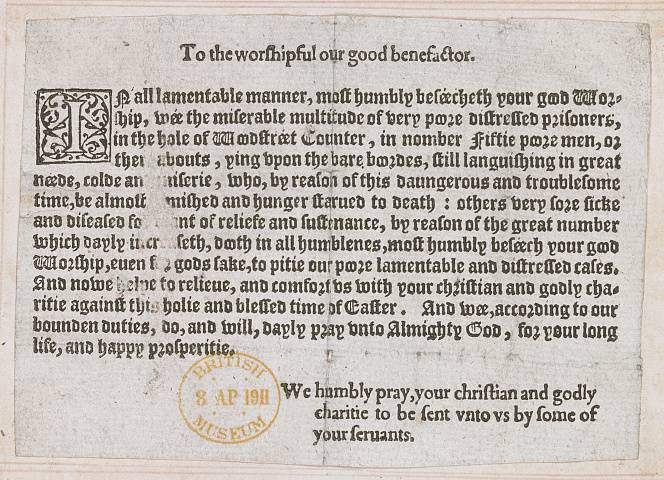 To the worſhipful our good benefactor.
IN all lamentable manner, moſt humbly beſéecheth your good Wor-
ſhip, wée the miſerable multitude of very poore diſtreſſed priſoners,
in the hole of Woodſtréet Counter, in nomber Fiftie poore men, or
abouts, ying vpon the bare boordes, ſtill languiſhing in great
néede, colde an miſerie, who, by reaſon of this daungerous and troubleſome
time, be almoſt miſhed and hunger ſtarued to death : others very ſore ſicke
and diſeaſed fo nt of reliefe and ſuſtenance, by reaſon of the great number
which dayly incr ſeth, dooth in all humblenes, moſt humbly beſéech your good
Worſhip, euen f gods ſake, to pitie our poore lamentable and diſtreſſed caſes.
And nowe helpe to relieue, and comfort vs with your chriſtian and godly cha-
ritie againſt this holie and bleſſed time of Eaſter. And wée, according to our
bounden duties, do, and will, dayly pray vnto Almighty God, for your long
life, and happy proſperitie.
We humbly pray, your chriſtian and godly
charitie to be ſent vnto vs by ſome of
your ſeruants.
BRITISH
8 AP 1911
MUSEUM